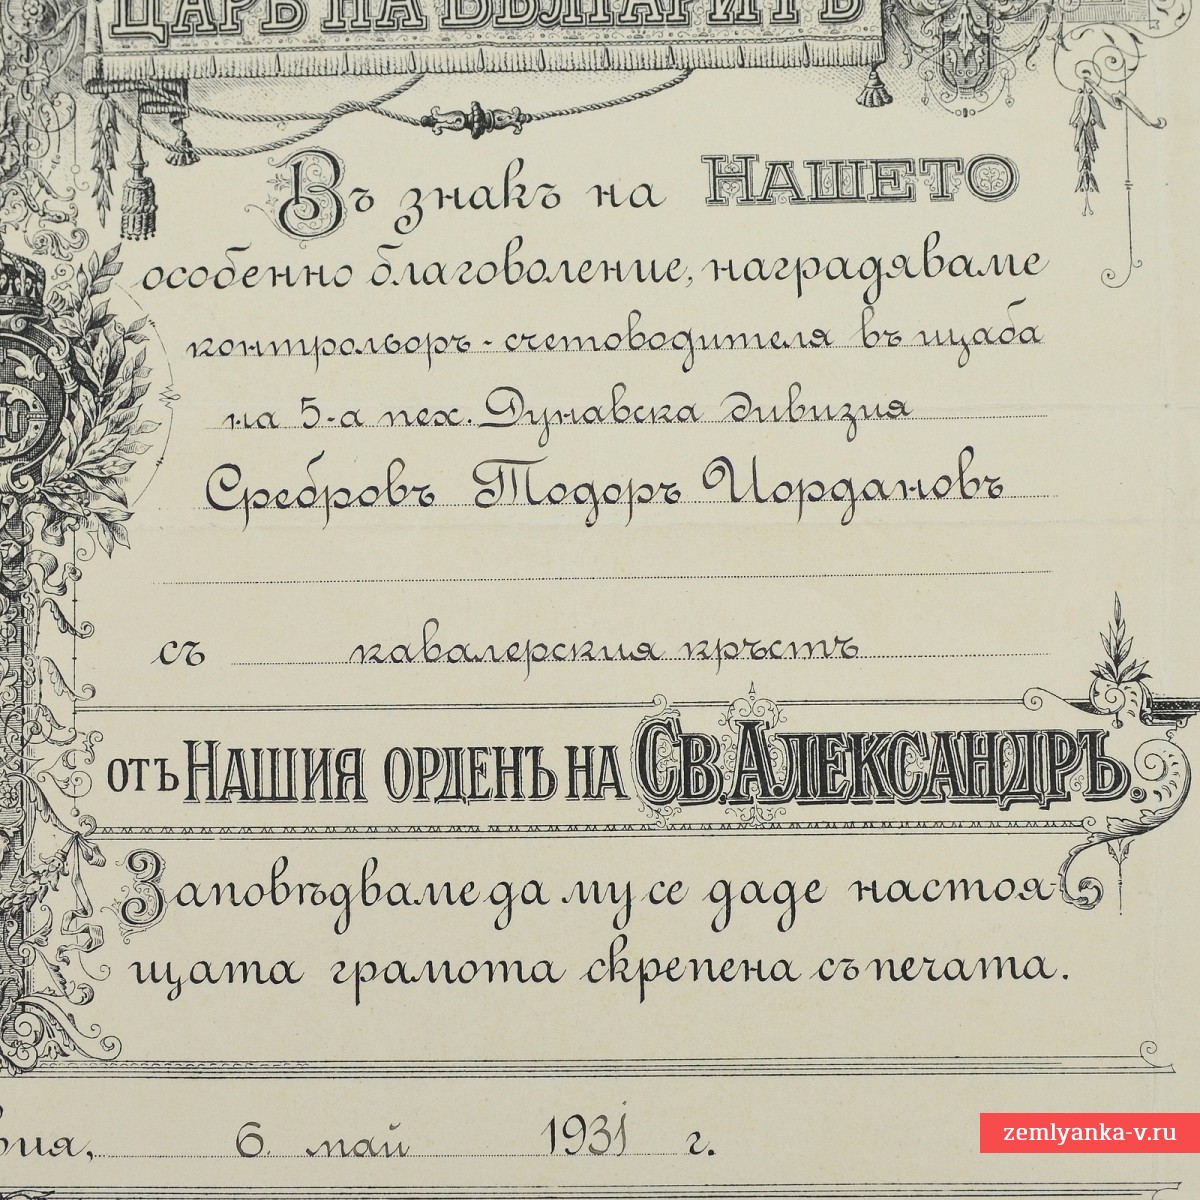 ЦАРЬ НА БЪЛГАРИТѢ
Въ знакъ на НАШЕТО
особенно благоволение, наградяваме
контрольоръ-счетоводителя въ щаба
на 5-а пех. Дунавска дивизия
Сребровъ Тодоръ Иордановъ
съ кавалерския кръстъ
отъ НАШИЯ ОРДЕНЪ НА СВ. АЛЕКСАНДРЪ.
Заповѣдваме да му се даде настоя-
щата грамота скрепена съ печата.
6. май 1931 г.
zemlyanka-v.ru